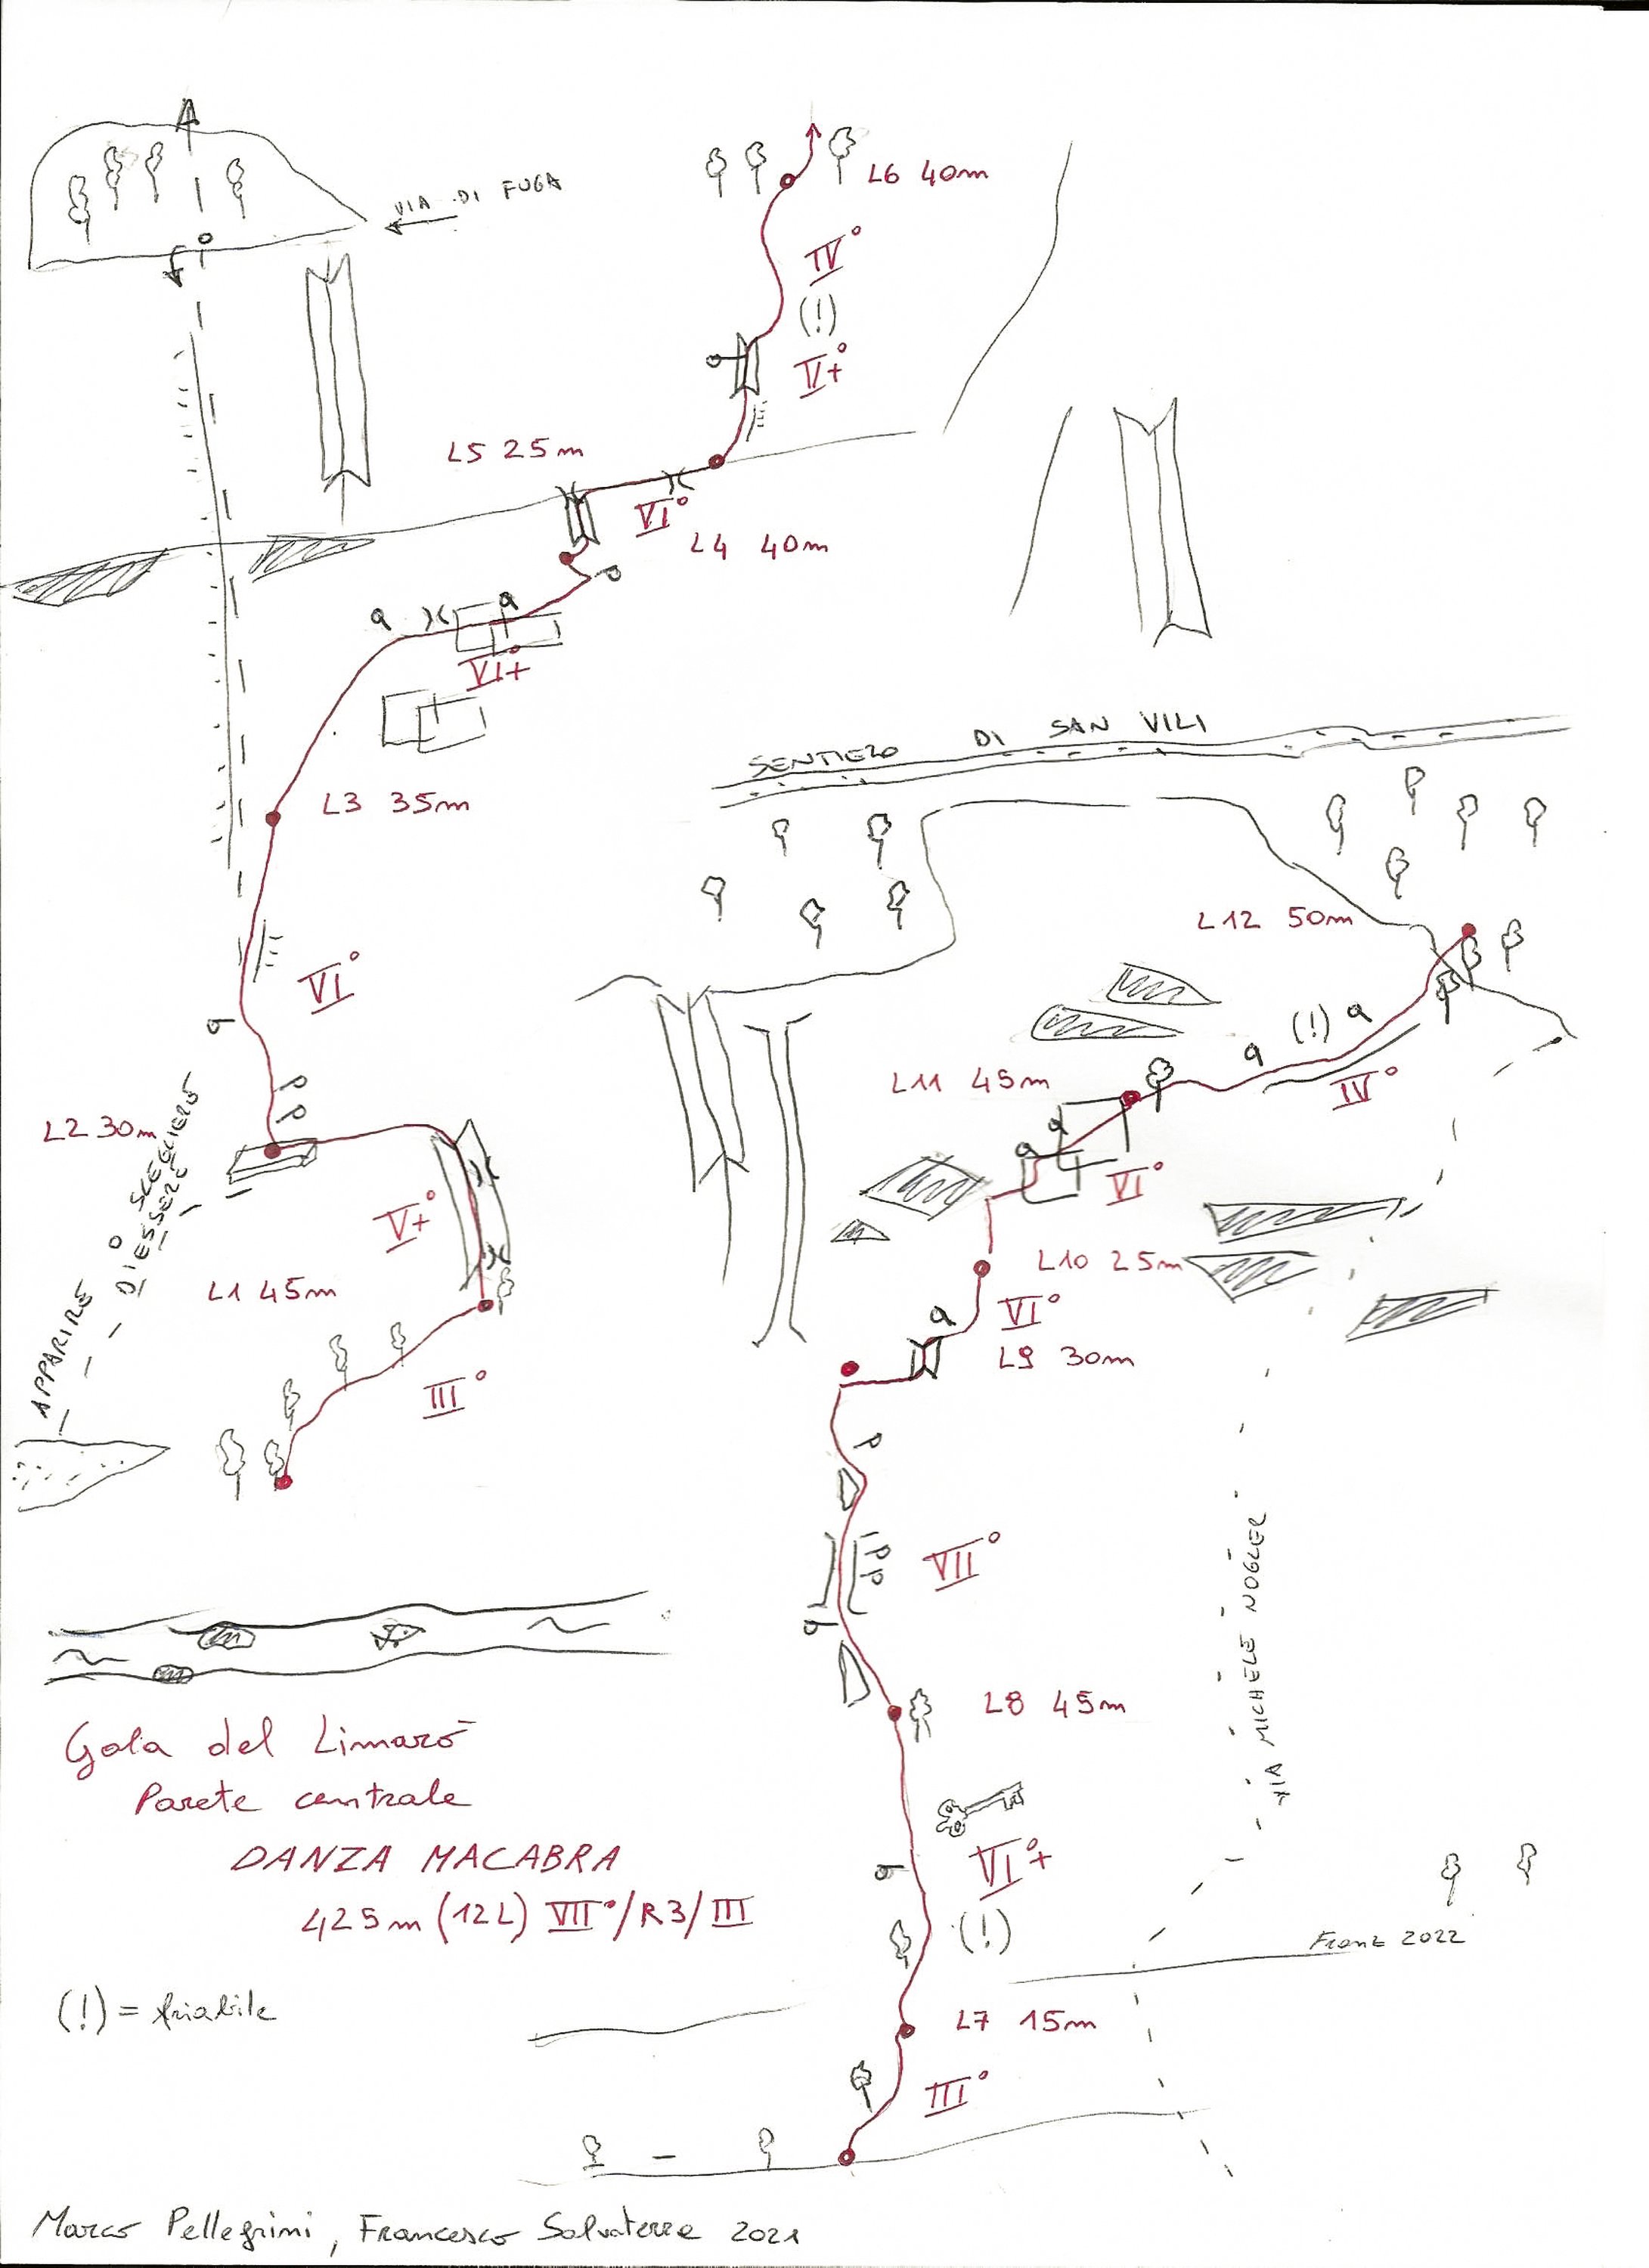 VIA DI FUGA
L6 40m
IV°
(!)
V+°
L5 25m
VI°
L4 40m
VI+°
L3 35m
VI°
L2 30m
V+°
L1 45m
III°
APPARIRE
O
DI ESSERE
SCEGLIERE
SENTIERO DI SAN VILI
L12 50m
(!)
IV°
L11 45m
VI°
L10 25m
VI°
L9 30m
VII°
L8 45m
VI°+
(!)
L7 15m
III°
VIA MICHELE NOGLER
Franz 2022
Gola del Limarò
Parete centrale
DANZA MACABRA
425m (12L) VII°/R3/III
(!) = friabile
Marco Pellegrini, Francesco Salvaterra 2021